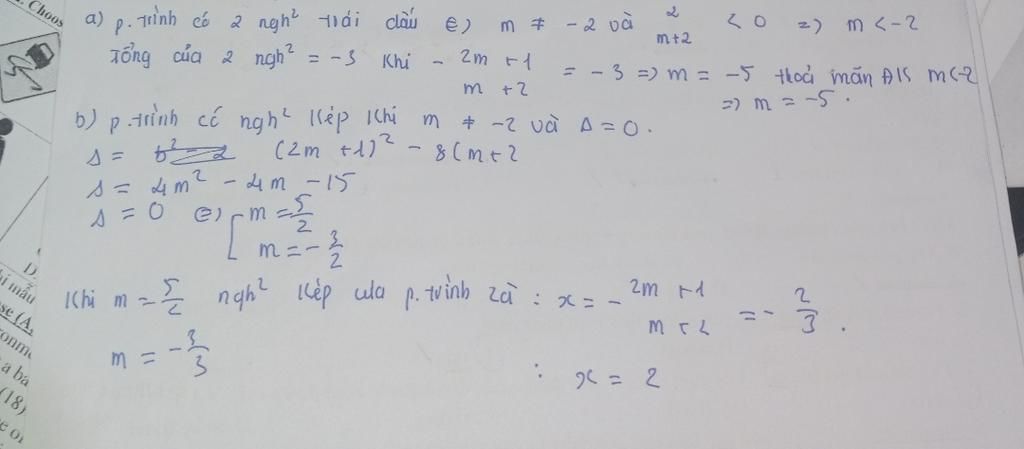 . Choos
a) p.trình có 2 ngh² trái dấu ⇔ m ≠ -2 và 2/m+2 < 0 => m < -2
Tổng của 2 ngh² = -3 Khi - 2m + 1 / m + 2 = -3 => m = -5 thoả mãn ĐK m<-2
=> m = -5.
b) p.trình có ngh² Kép Khi m ≠ -2 và Δ = 0.
Δ = (2m + 1)² - 8(m+2
Δ = 4m² - 4m - 15
Δ = 0 ⇔ [ m = 5/2
m = - 3/2
Khi m = 5/2 ngh² Kép của p.trình là : x = - 2m + 1 / m + 2 = - 2/3 .
m = - 3/3 : x = 2
D.
hi mẫu
se (A,
ronm
a ba
(18)
e or